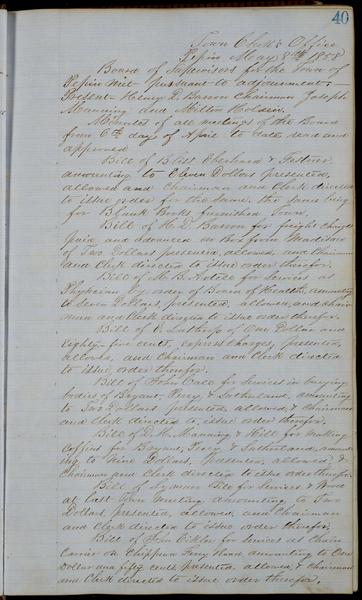 40
Town Clerk's Office
Pepin May 8th 1858
Board of Supervisors for the Town of
Pepin met pursuant to adjournment
Present Henry D. Barron Chairman Joseph
Manning and Milton Holden.
Minutes of all meetings of the Board
from 6th day of April to date read and
approved
Bill of Bliss Eberhard & Festner
amounting to Eleven Dollars presented,
allowed and Chairman and Clerk directed
to issue order for the same, the same being
for Blank Books furnished Town.
Bill of H. D. Barron for freight charges
paid and advanced on Box from Madison
of Two Dollars presented, allowed, and Chairman
and Clerk directed to issue order therefor.
Bill of B. for services as
Physician by order of Board of Health, amounting
to seven Dollars, presented, allowed, and chair
man and Clerk directed to issue order therefor.
Bill of Lathrop of One Dollar and
eighty-five cents, express charges, presented,
allowed, and Chairman and Clerk directed
to issue order therefor.
Bill of John for services in burying
bodies of Bryant, Percy & Sutherland, amounting
to Two Dollars presented, allowed, & Chairman
and Clerk directed to issue order therefor.
Bill of Manning & Hill for making
coffins for Bryant, Percy & Sutherland, amount
ing to Nine Dollars, presented, allowed, &
Chairman and Clerk directed to issue order therefor.
Bill of Lyman for services & Wood
at last Town meeting amounting to Two
Dollars, presented, allowed, and Chairman
and Clerk directed to issue order therefor.
Bill of John for services as Chain
Carrier on Chippewa Ferry Road, amounting to One
Dollar and fifty cents presented, allowed, & Chairman
and Clerk directed to issue order therefor.